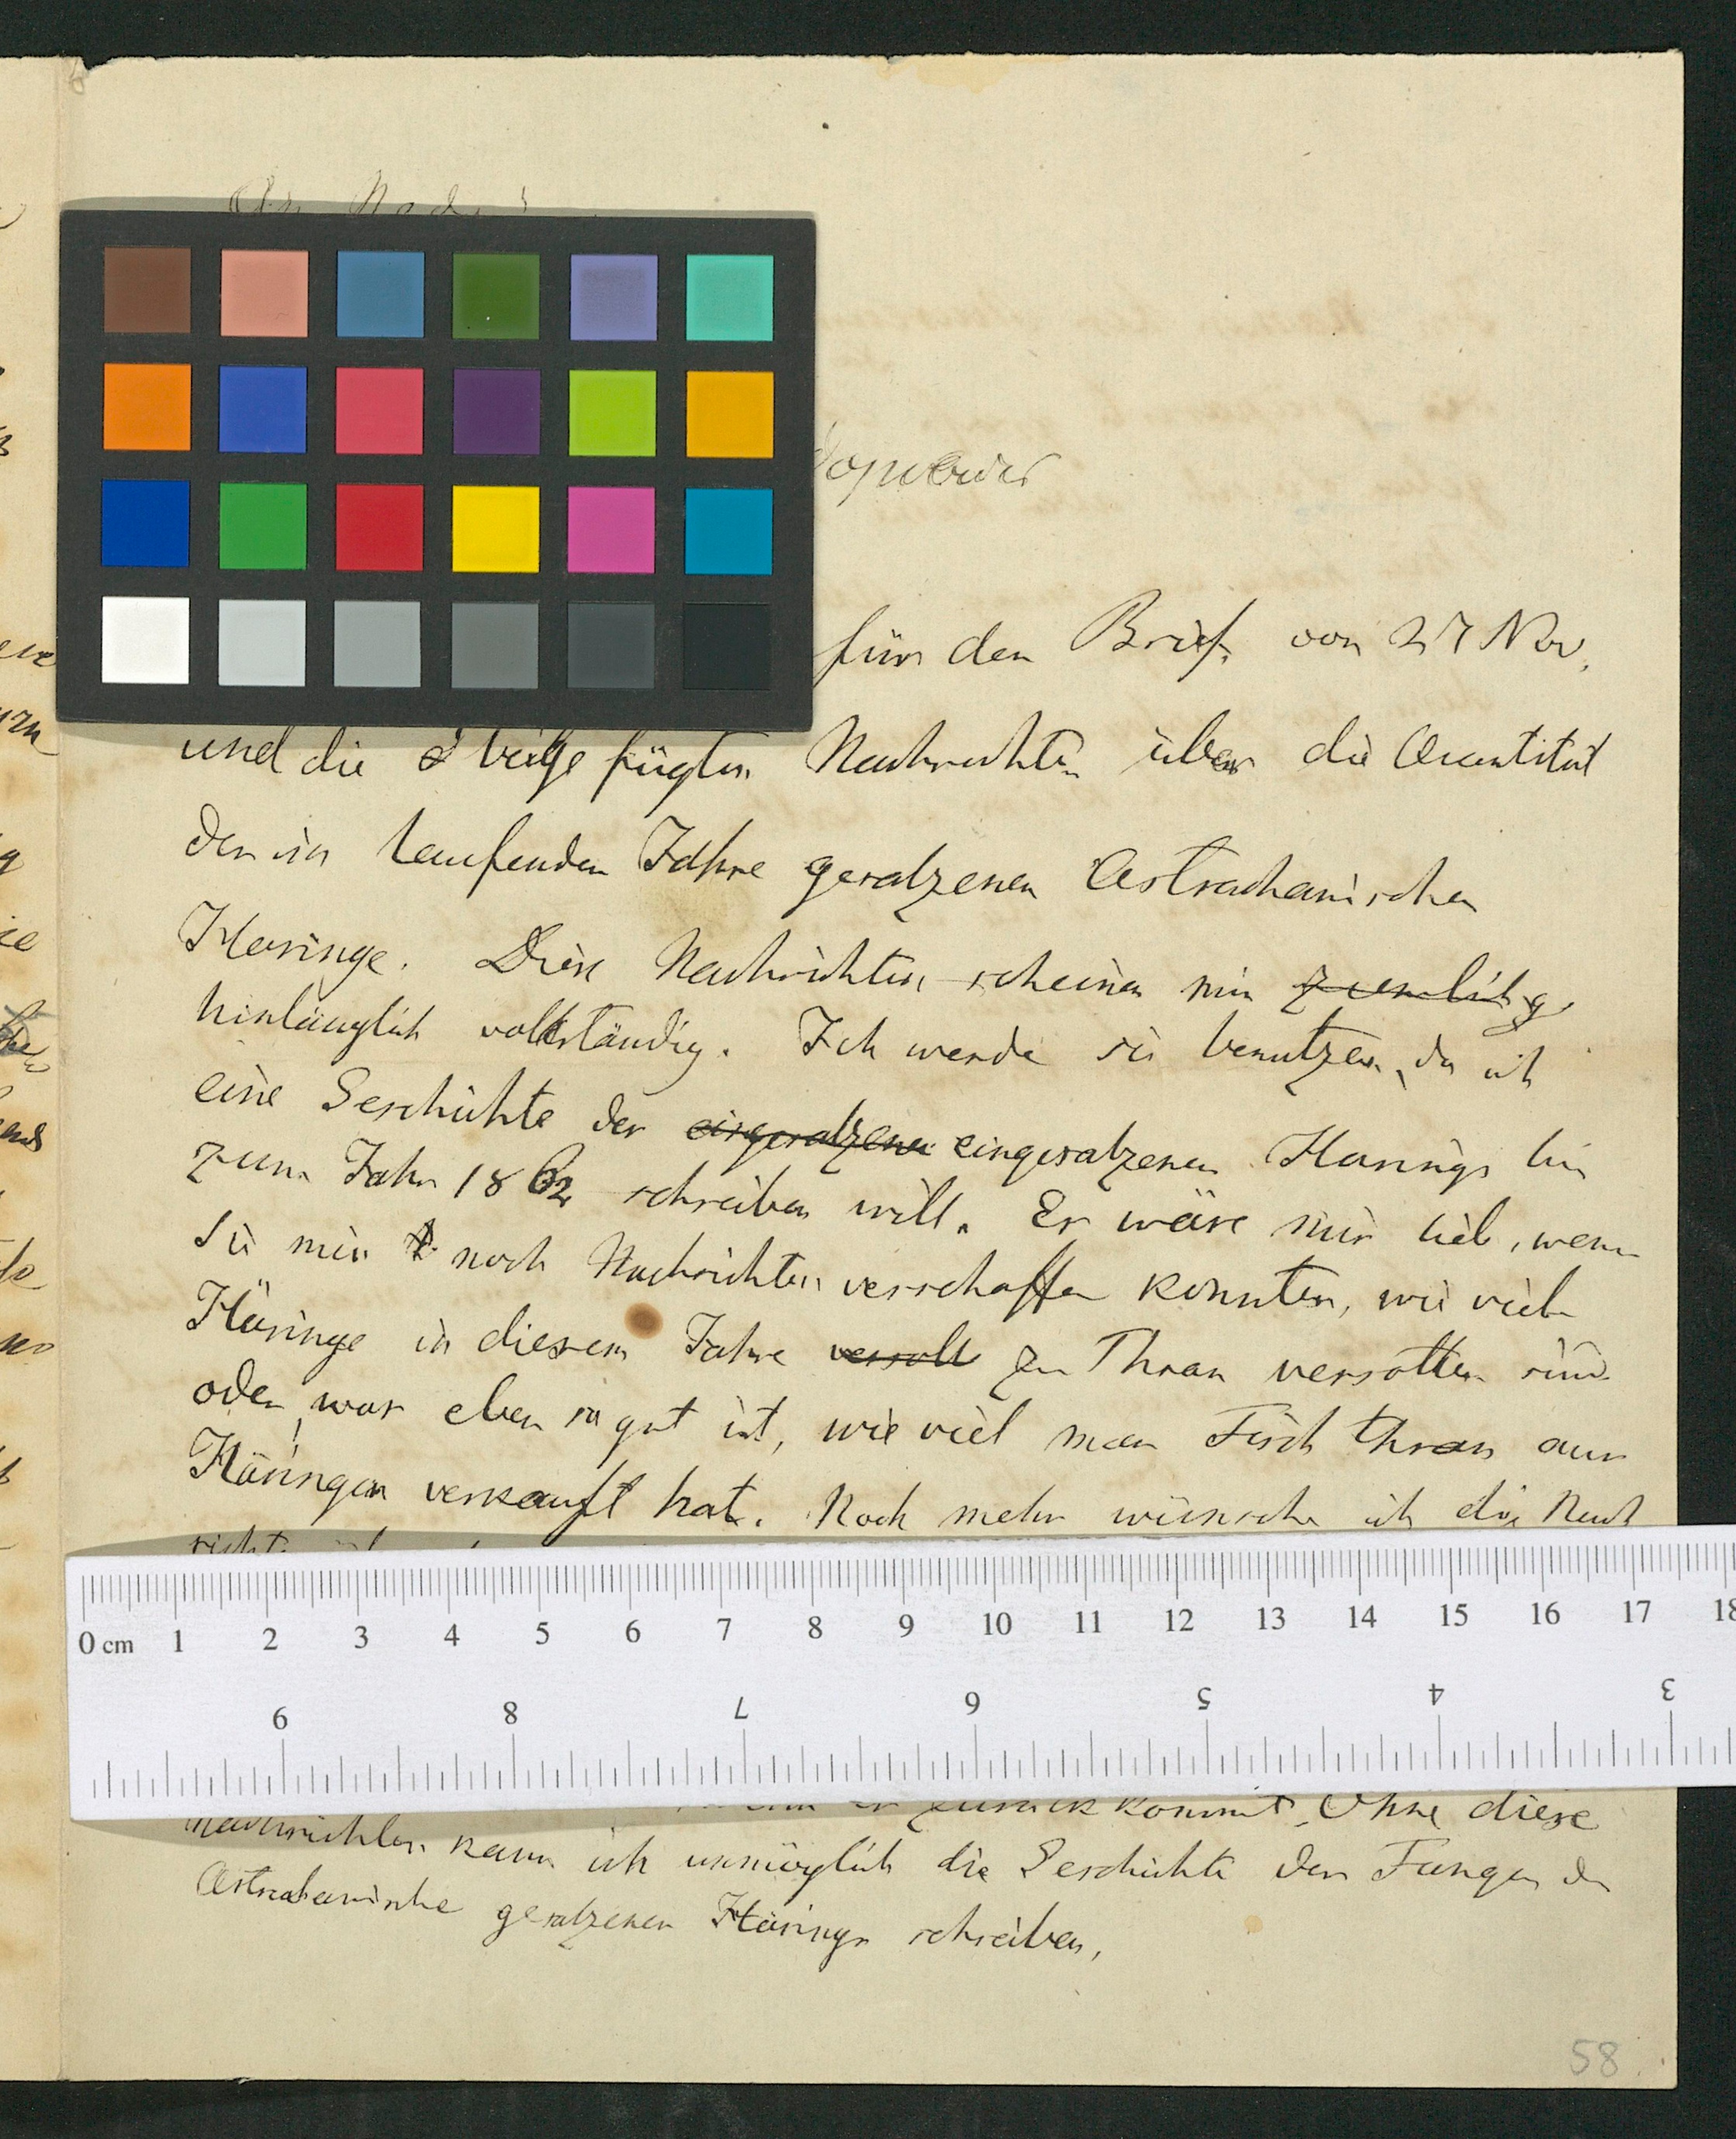 für den Brief vom 27 Nov.
und die beigefügten Nachrichten über die Quantität
der im laufenden Jahre gesalzenen Astrachanischen
Häringe. Diese Nachrichten scheinen mir
hinlänglich vollständig. Ich werde sie benutzen, da ich
eine Geschichte der eingesalzenen eingesalzenen Härings bis
zum Jahr 1862 schreiben will. Es wäre mir lieb, wenn
Sie mir noch Nachrichten verschaffen könnten, wie viele
Häringe in diesem Jahre versott zu Thran versotten sind
oder, was eben so gut ist, wie viel man Fisch Thran aus
Häringen verkauft hat. Noch mehr wünsche ich die Nach
0 cm 1 2 3 4 5 6 7 8 9 10 11 12 13 14 15 16 17 18
9 8 7 6 5 4 3
er zurück kommt. Ohne diese
Nachrichten kann ich unmöglich die Geschichte des Fanges der
Astrachanische gesalzenen Härings schreiben,
58